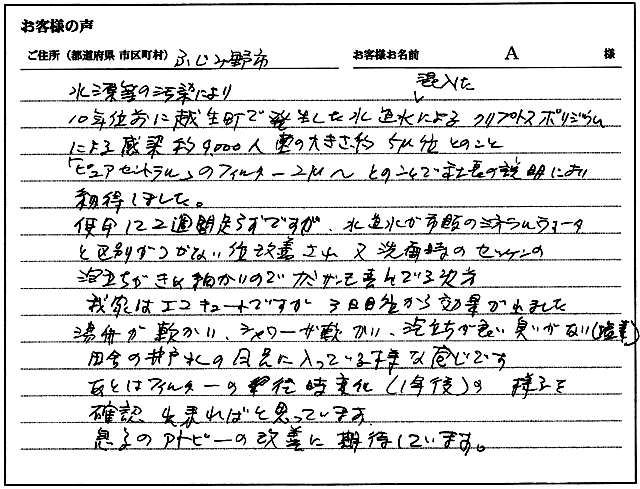 お客様の声
ご住所（都道府県 市区町村） ふじみ野市 お客様お名前 A 様
水源等の汚染により 混入した
10年位前に越生町で発生した水道水による クリプトスポリジウム
による感染 約9,000人 菌の大きさ約 5μ位 とのこと
「ピュアセントラル」のフィルター2μへ とのことで社長の説明により
期待しました。
使用に2週間足らずですが、水道水が市販のミネラルウォータ
と区別がつかない位改善され 又 洗面時のセッケンの
泡立ちがきめ細かいので 喜んでる次方
我家はエコキュートですが 3日目位から効果が れました
湯舟が軟かい、シャワーが軟かい、泡立ちが良い 臭いがない(塩素)
田舎の井戸水の風呂に入っている様な感じです
あとはフィルターの 時変化 (1年後)の 様子を
確認 出来ればと思っています
息子のアトピーの改善に 期待しています。